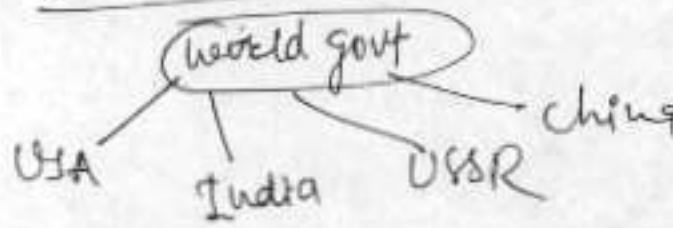 world govt
USA India USSR China